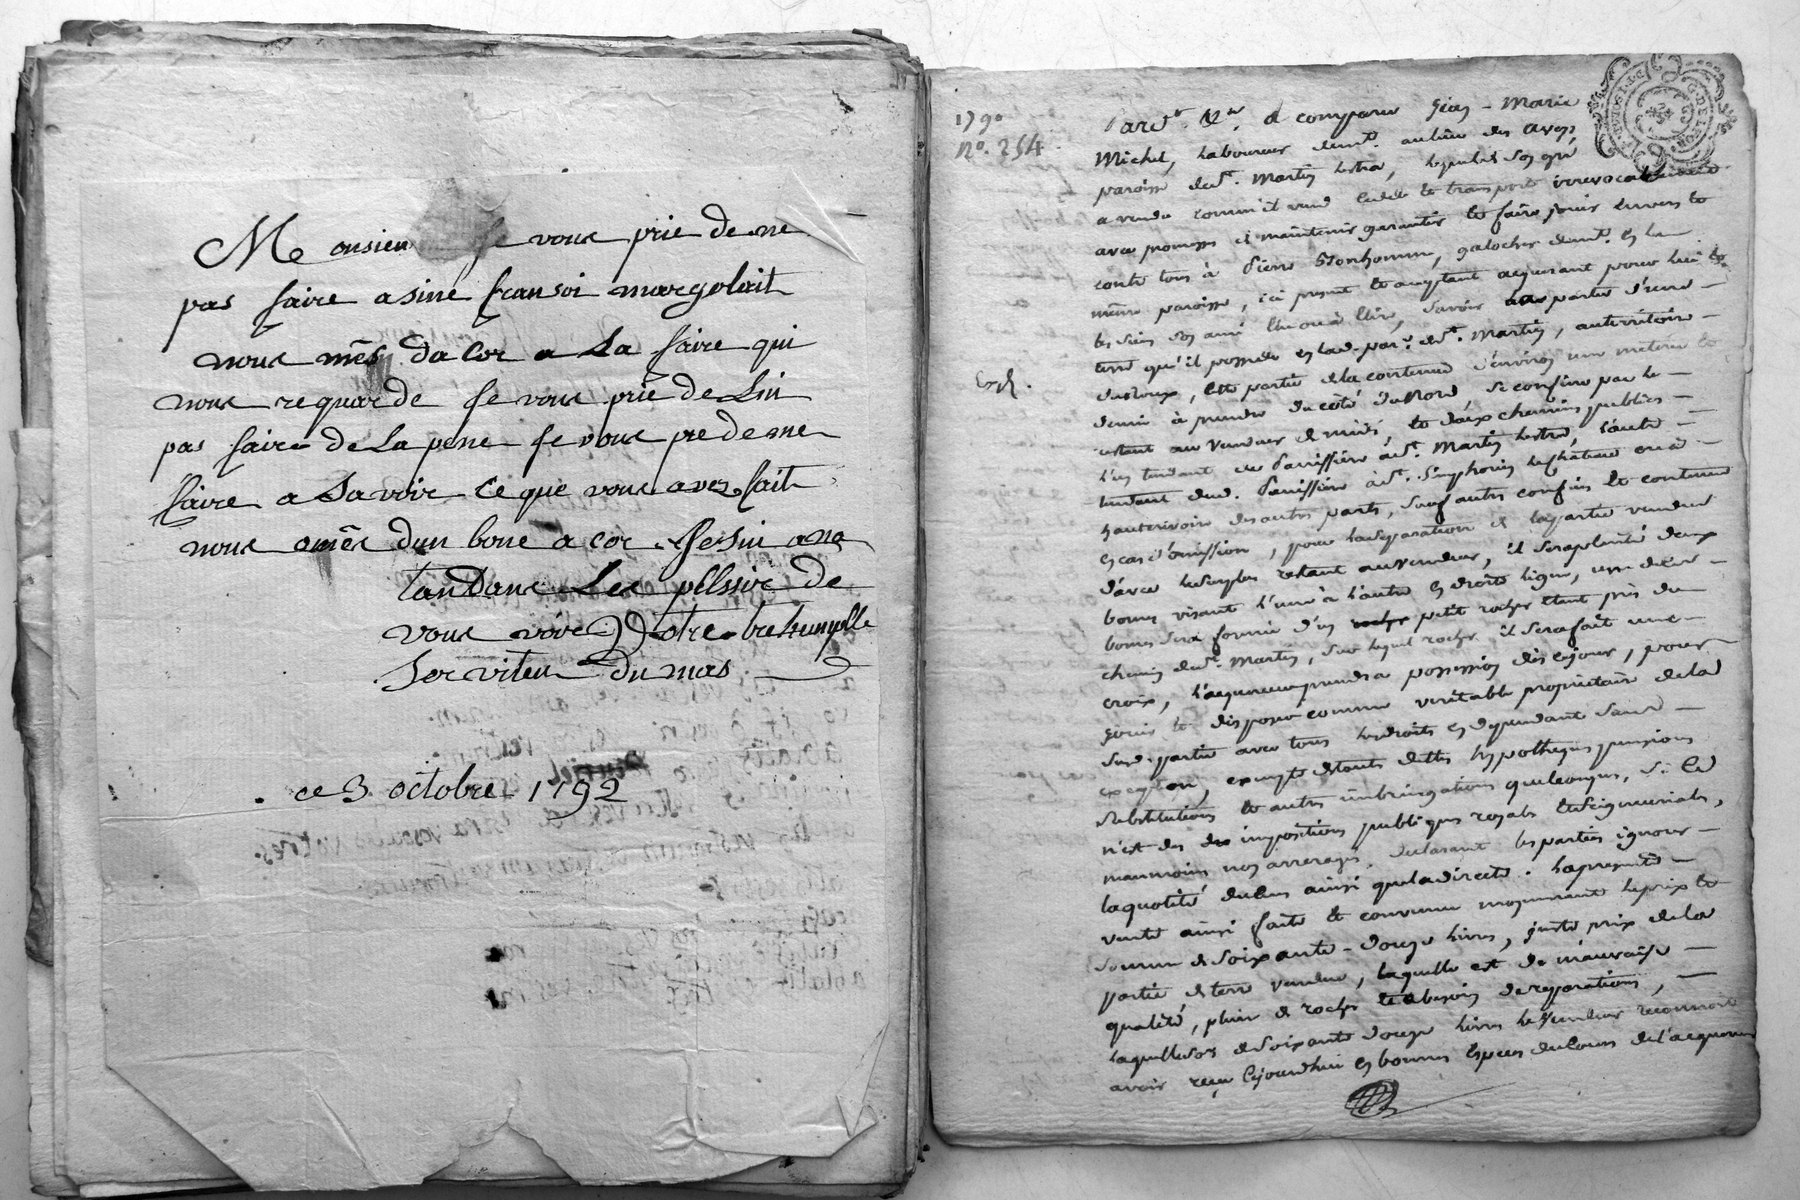 Monsieu je vous prie de ne
pas faire asine fransoi margolait
nous mês da cor a La faire qui
nous requarde Je vous prie de Lui
pas faire de La pene Je vous prede me
faire a Savoir ce que vous avez fait
nous omês dun bone a cor Je Sui ana
tandans Les plessire de
vous voire Votre tre humble
Serviteu du mas
ce 3 octobre 1792
1790
n.º 254
Pard.t N.re a comparu Jean-Marie
Michel, laboureur demt. au lieu des
paroisse de St. Martin Lestra, lequel de son gré
a vendu comm'il vend cede et transporte irrevocablement
avec promesse de maintenir garantir et faire jouir envers et
contre tous à Pierre Bonhomme, galocher demt. en la
même paroisse, ici present et acceptant acquerant pour lui et
les siens ou ami elu ou à elire, savoir une partie d'une
terre qu'il possede en lad. par. de St. Martin, au territoire
, cette partie de la contenue d'environ une meterée et
demie à prendre du côté du Nord, se confine par le
restant au vendeur de midi, et deux chemins publics
l'un tendant de Panissiere à St. Martin Lestra, l'autre
tendant dud. Panissiere à St. Simphorien le chateau ou à
hauterivoire des autres parts, sauf autres confins et contenue
en cas d'omission, pour la separation de la partie vendue
d'avec le surplus restant au vendeur, il sera planté deux
bornes visant l'une à l'autre en droite ligne, une desd.
bornes sera formée d'un petit rocher etant près du
chemin de St. Martin, sur lequel rocher il sera fait une
croix, l'acquereur prendra possession dès ce jour, pour
jouir et disposer comme veritable proprietaire de lad
susd. partie avec tous les droits en dependants sans
exception, exempte de toutes dettes hypotheques pensions
substitutions et autres imbringations quelconques, si ce
n'est des impositions publiques royales et seigneuriales,
neanmoins sans arrerages, declarant les parties ignorer
la quotité du cens ainsi que la directe. La presente
vente ainsi faite et convenue moyennant le prix et
somme de soixante-douze livres, juste prix de la
partie de terre vendue, laquelle est de mauvaise
qualité, pleine de rocher et a besoin de reparations,
laquelle so.e de soixante douze livres le vendeur reconnoit
avoir reçu cejourdhui en bonnes especes du cours de l'acquereur